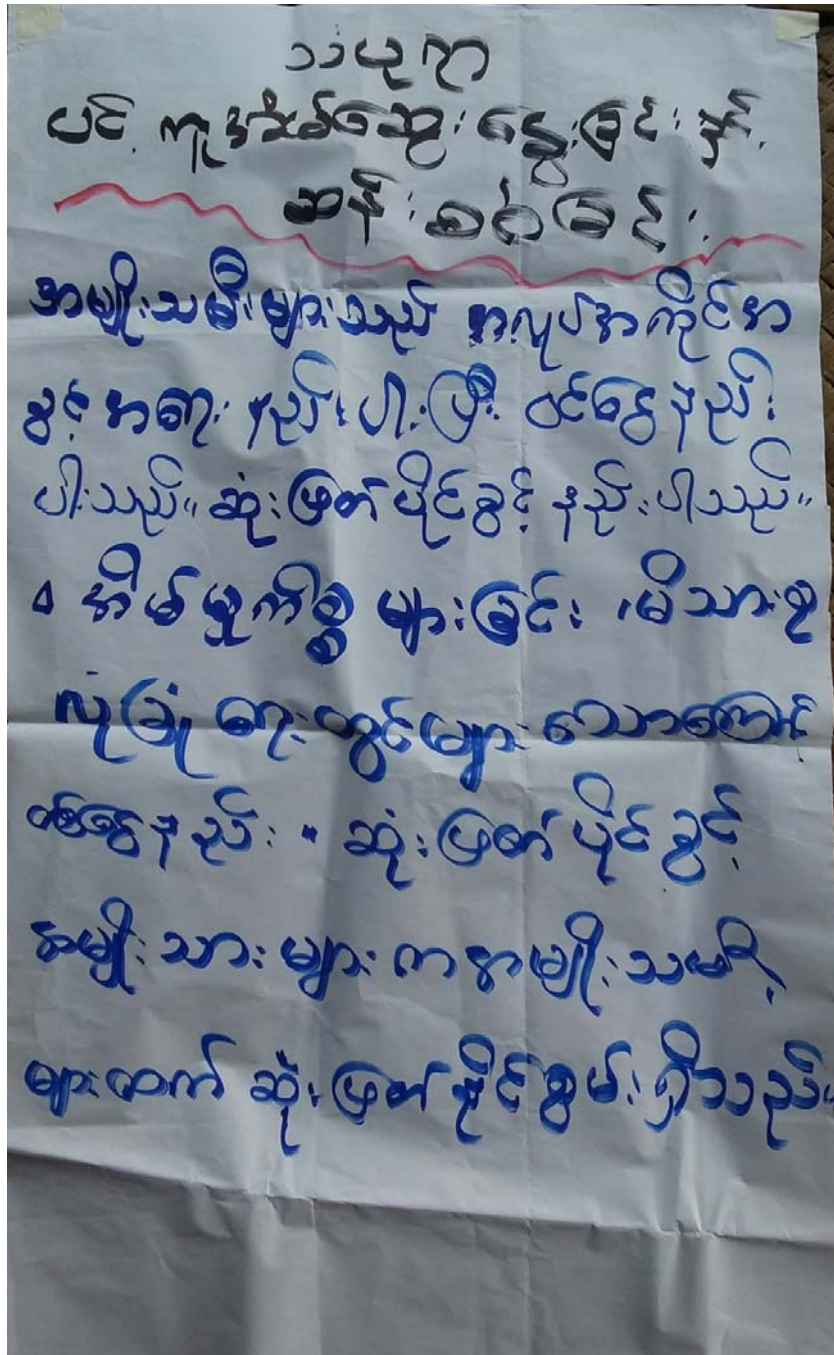 သံယုဂ
ပင် ကူအိမ်ဆွေးနွေးခြင်းနှင့်
ဆန်းစစ်ခြင်း
အမျိုးသမီးများသည် အလုပ်အကိုင်အ
ခွင့်အရေး နည်းပါးပြီး ဝင်ငွေနည်း
ပါးသည်။ ဆုံးဖြတ်ပိုင်ခွင့် နည်းပါသည်။
အိမ်မှုကိစ္စ များခြင်း မိသားစု
လုံခြုံရေးတွင်များသောကြောင့်
ဝင်ငွေနည်း။ ဆုံးဖြတ်ပိုင်ခွင့်
အမျိုးသားများကအမျိုးသမီး
များထက် ဆုံးဖြတ်နိုင်စွမ်းရှိသည်။